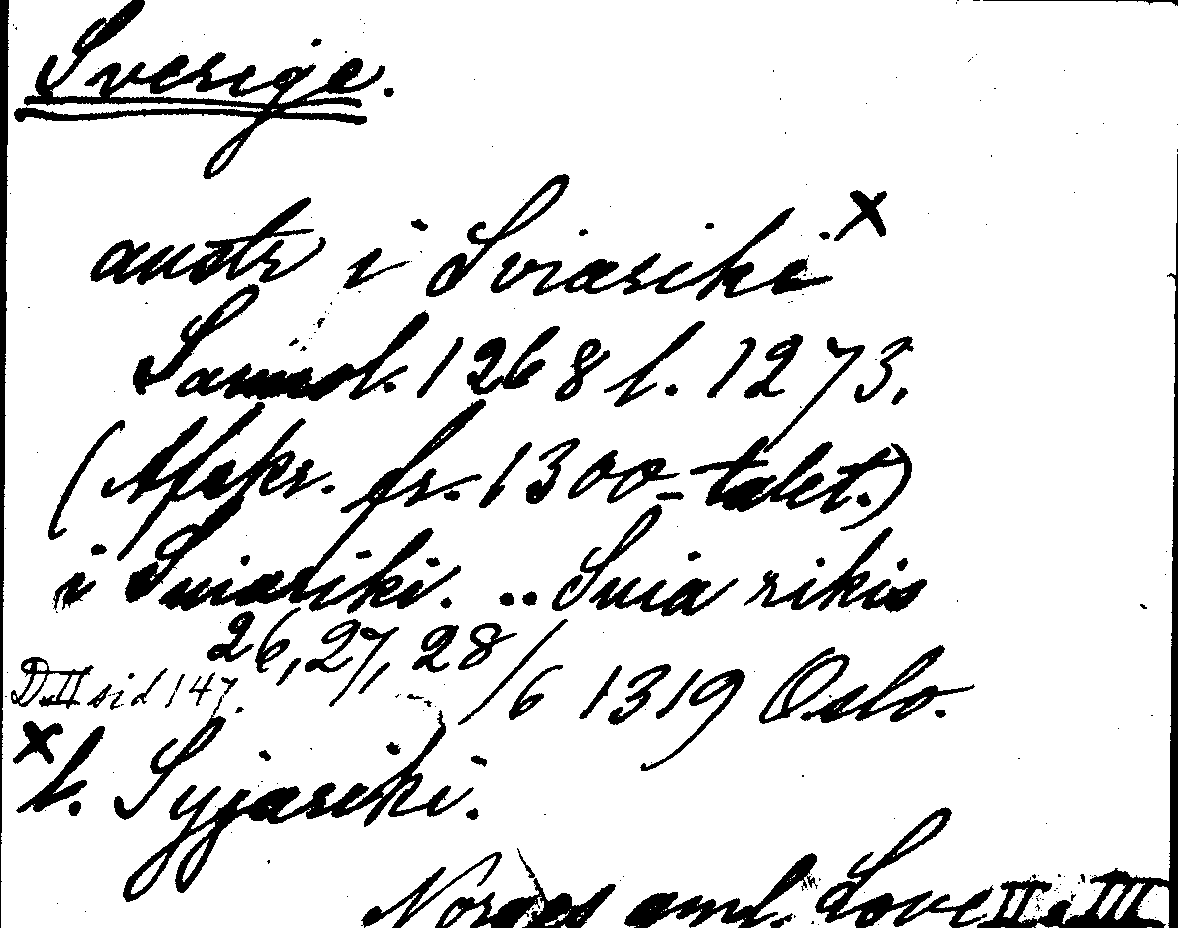 Sverige.
austr i Sviariki x
Samml. 1268 l. 1273.
(Afskr. fr. 1300-talet.)
i Suiariki. .. Suia rikis
26, 27, 28/6 1319 Oslo.
D II sid 147.
x l. Syjariki.
Norges gml. Love II o III